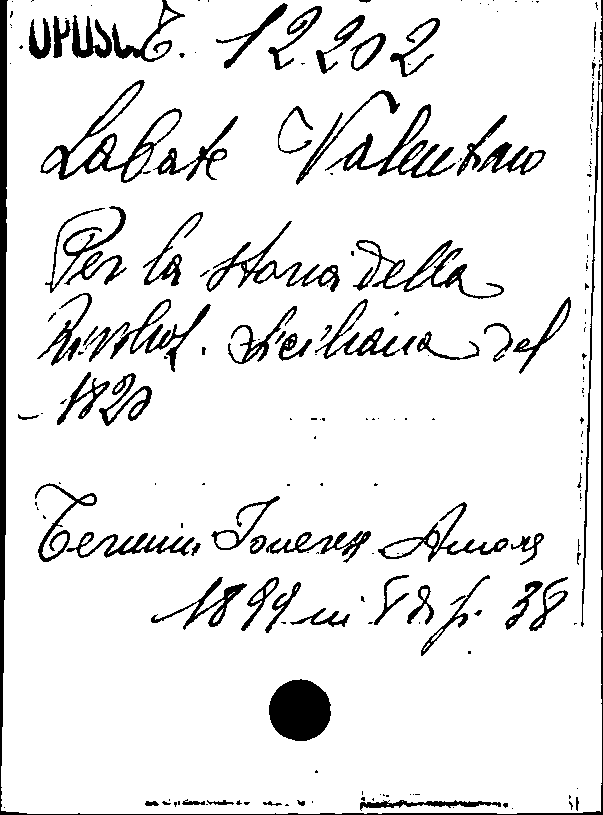 OPUSC. E. 12202
Labate Valentino
Per la storia della
Rivoluz. Siciliana del
1820
Termini Imerese Amore
1899 in 8 di p. 38